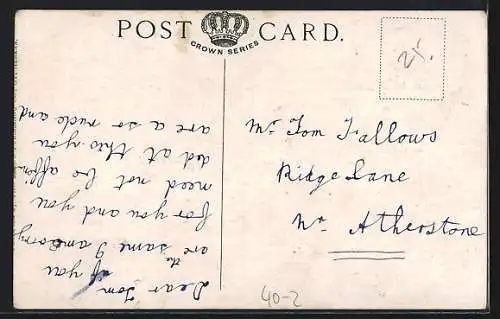 POST CARD.
CROWN SERIES
25.
Mr Tom Fallows
Ridge Lane
Nr Atherstone
Dear Tom
if you
are the same I am sorry
for you and you
need not be affen
ded at this you
are a so rude and
40-2